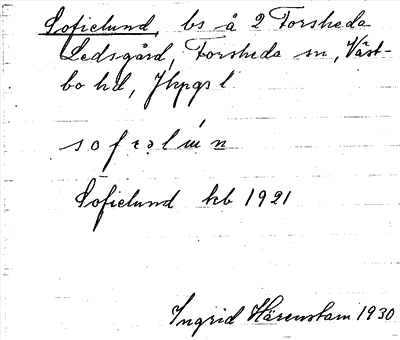 Sofielund, bs å 2 Forsheda
Ledsgård, Forsheda sn, Väst-
bo hd, Jkpgs l
Sofielund kb 1921
Ingrid Härenstam 1930